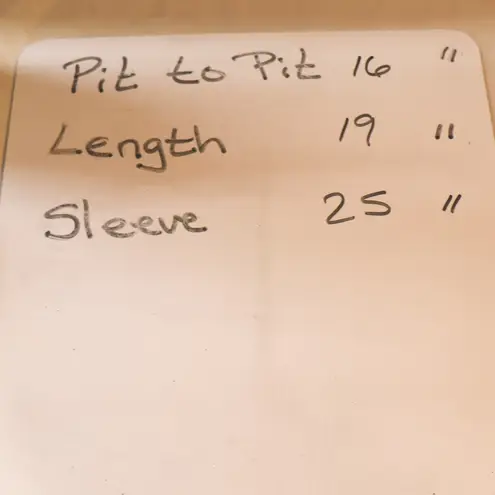 Pit to Pit 16 "
Length 19 "
Sleeve 25 "